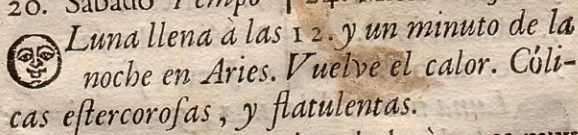 20. Sabado Tempo
Luna llena à las 12. y un minuto de la
noche en Aries. Vuelve el calor. Cóli-
cas eſtercoroſas, y flatulentas.